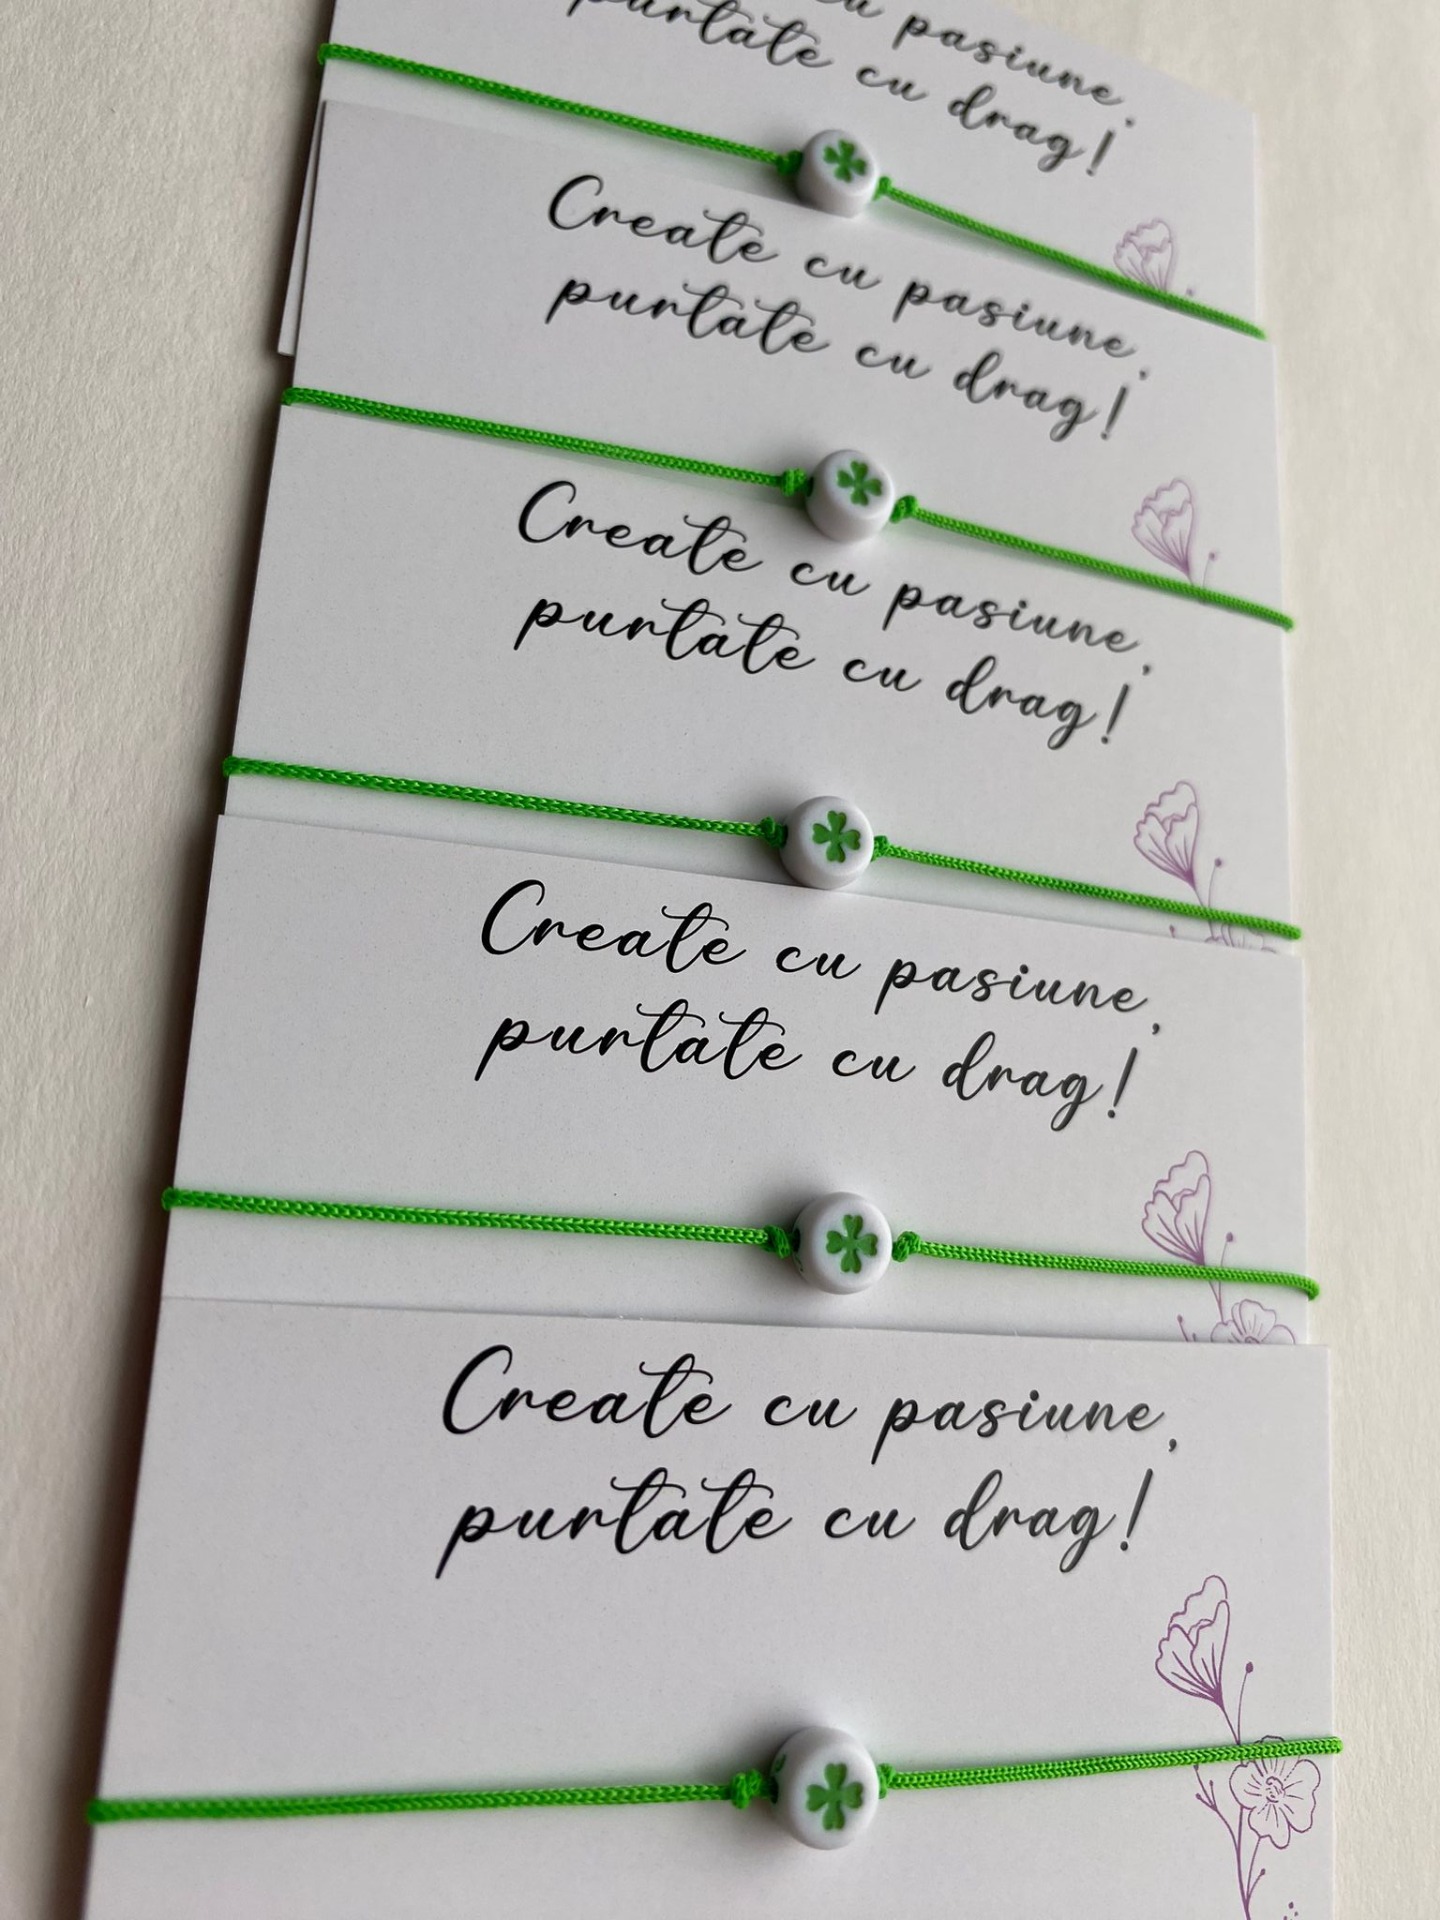 pasiune,
purtate cu drag!
Create cu pasiune,
purtate cu drag!
Create cu pasiune,
purtate cu drag!
Create cu pasiune,
purtate cu drag!
Create cu pasiune,
purtate cu drag!